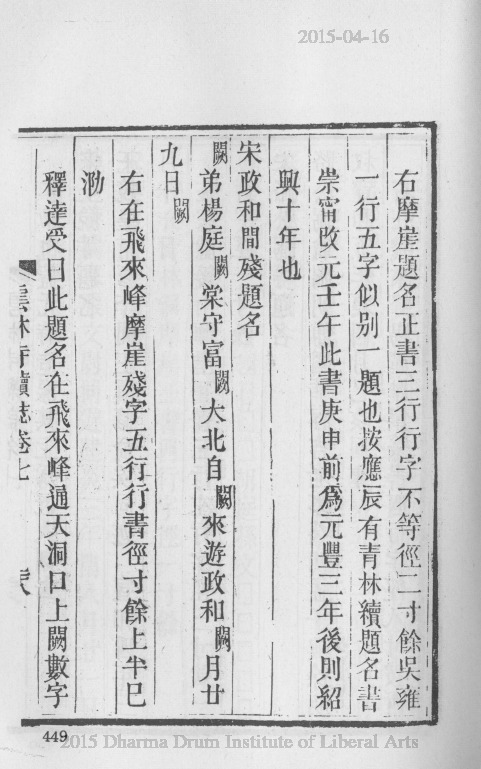 2015-04-16
右摩崖題名正書三行行字不等徑二寸餘吳雍
一行五字似別一題也按應辰有青林續題名書
崇甯改元壬午此書庚申前爲元豐三年後則紹
興十年也
宋政和間殘題名
闕弟楊庭闕棠守富闕大北自闕來遊政和闕月廿
九日闕
右在飛來峰摩崖殘字五行行書徑寸餘上半已
泐
釋達受曰此題名在飛來峰通天洞口上闕數字
雲林寺續誌卷七
449
2015 Dharma Drum Institute of Liberal Arts